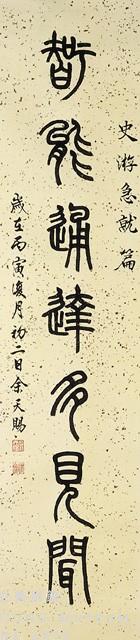 史游急就篇
智能通達多見聞
歲在丙寅復月初二日余天賜